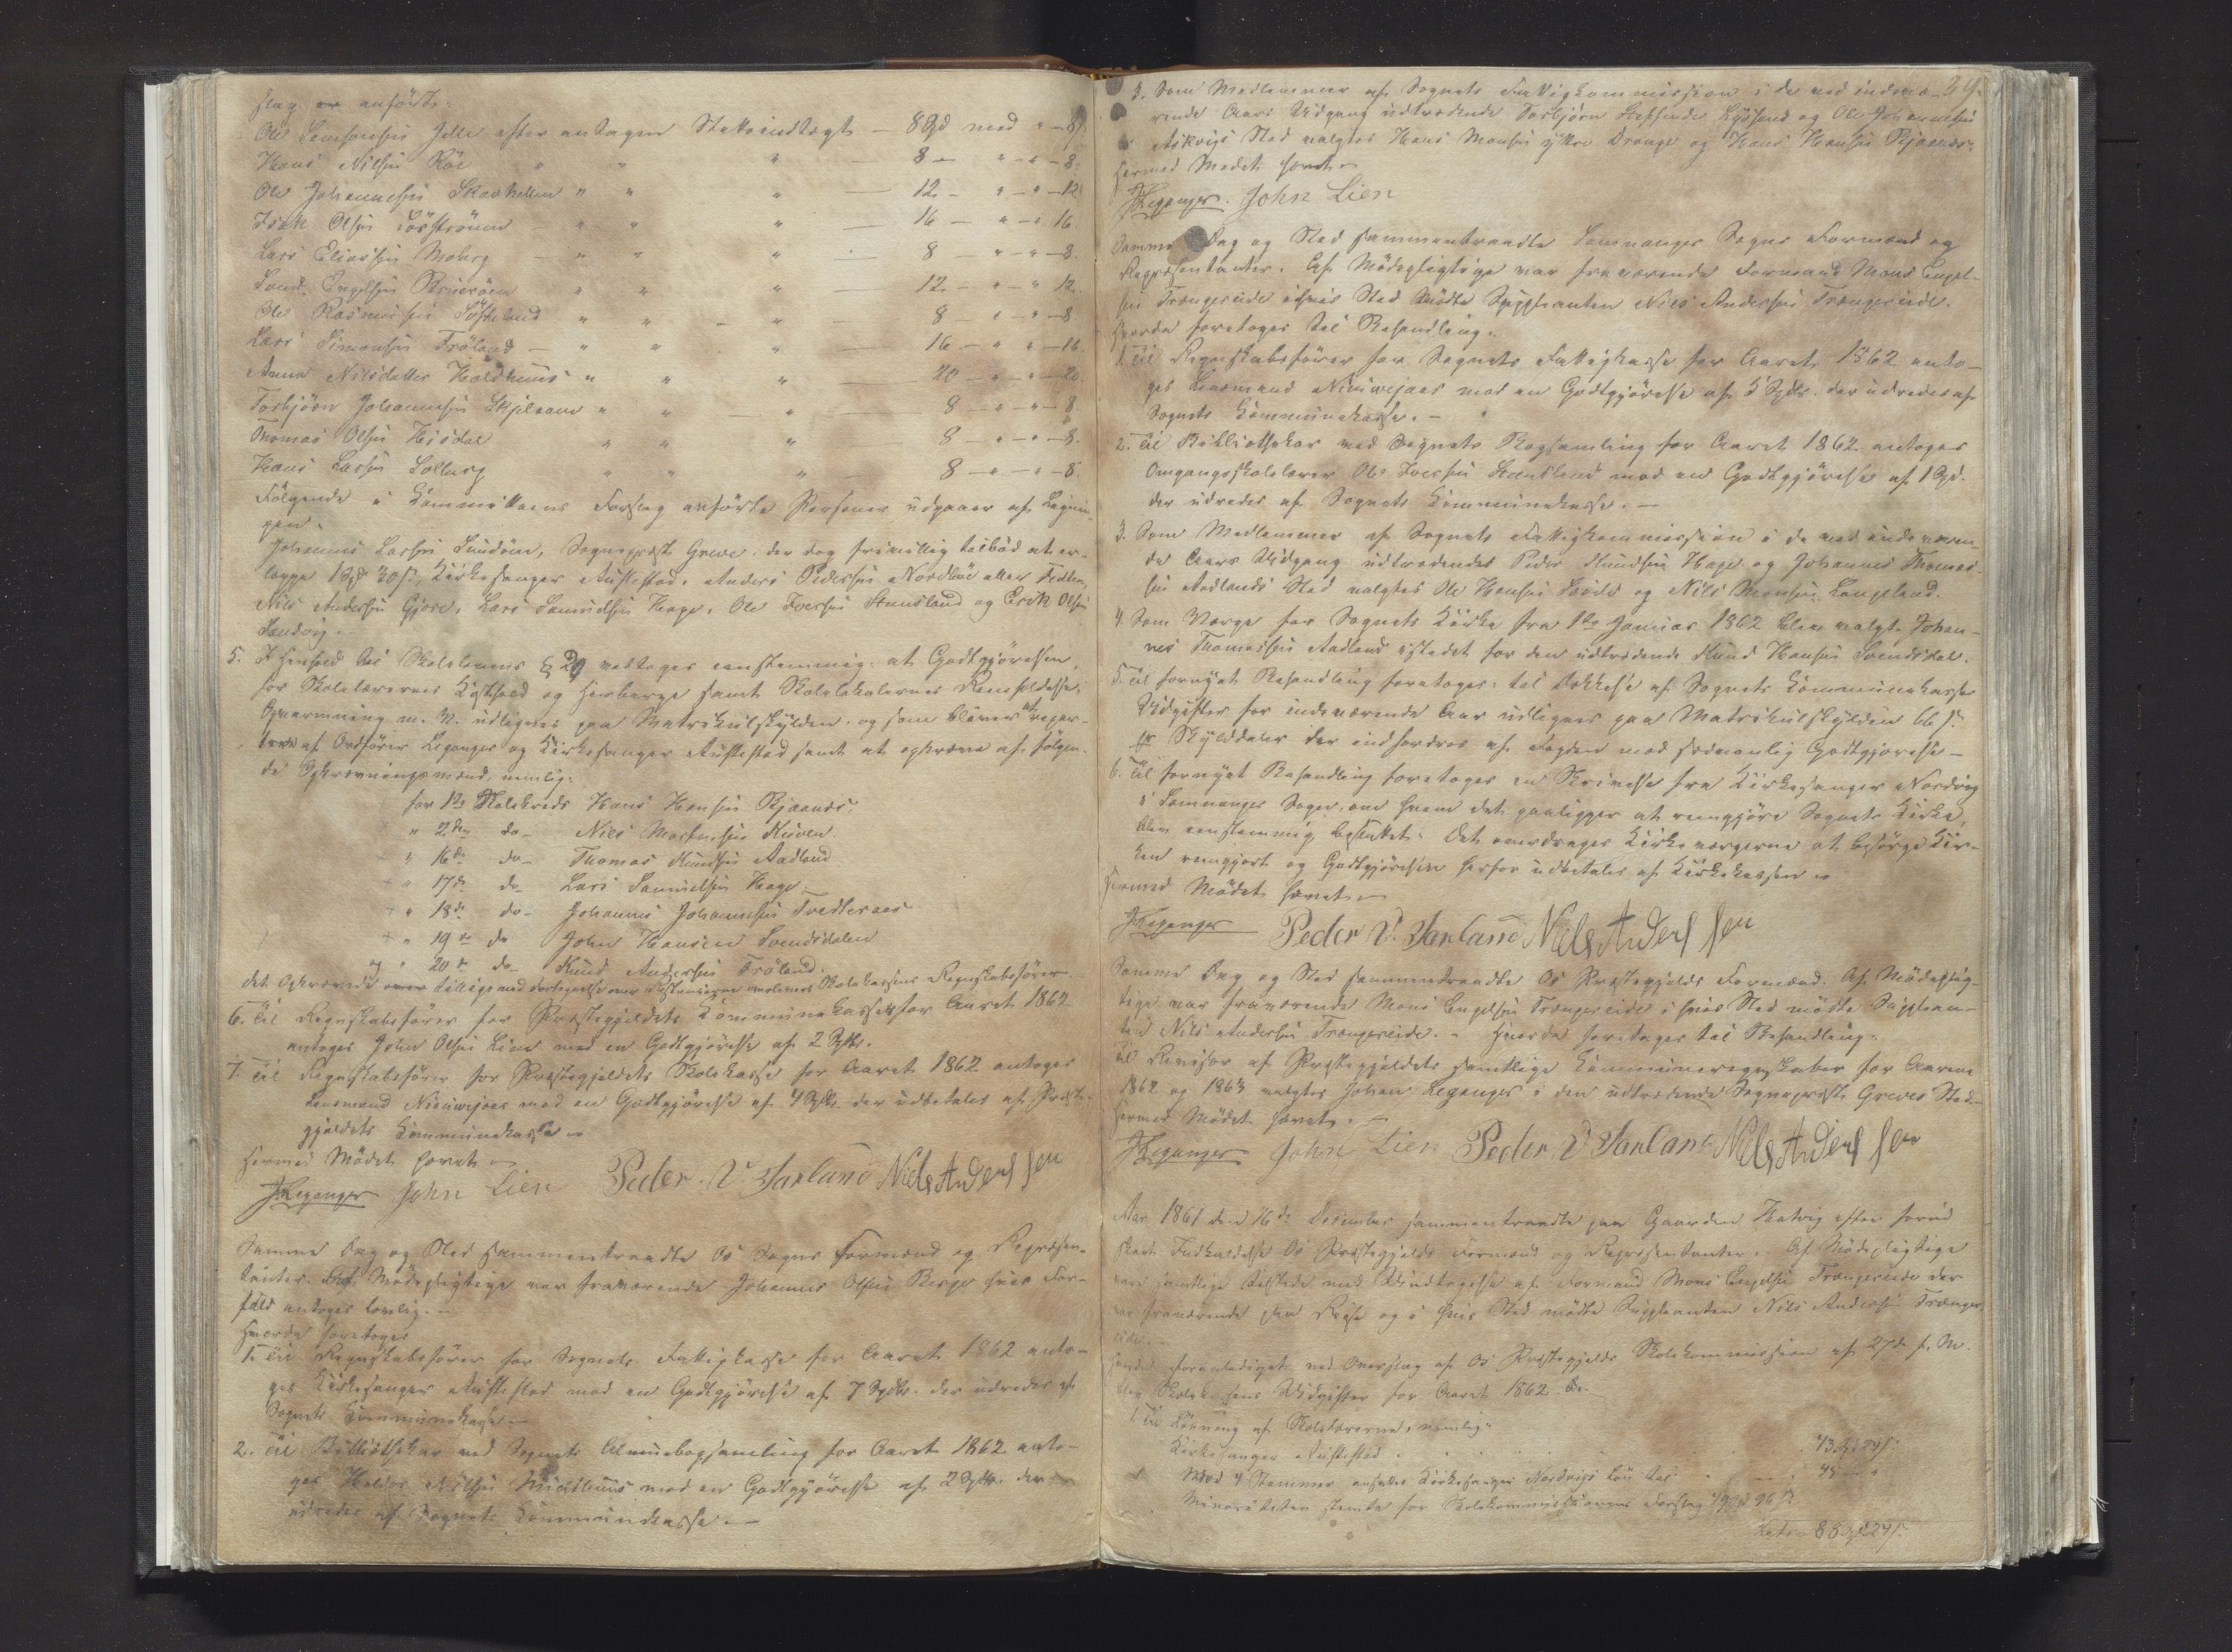 slag er anförte:
Ole Samsonsen Jelle efter antagen Skatteindtægt — 8 Spd med " — 8 ß
Hans Nilsen Röe " " " 8 — " — " — 8.
Ole Johannessen Skarhellen " " " — 12 — " — " — 12
Isak Olsen " " " — 16 — " — " 16.
Lars Eliassen Moberg — " " " — 8 — " — " — 8.
Engelsen " " " 12 — " — " 12.
Ole Rasmussen Söfteland " " — " — 8 — " — " — 8.
Lars Simonsen Tröland — " " " — 16 — " " — 16.
Anna Nilsdatter Holdhuus " " " — 20 — " — " — 20.
Torbjörn Johannessen Skjelaane " " — " — 8 — " — " — 8
Thomas Olsen Hisdal " " " 8 — " — " — 8.
Hans Larsen Solberg " " " 8 — " — " — 8.
Følgende i Committeens Forslag anförte Personer udgaaer af Lignin-
gen:
Johannes Larsen Sundöen, Sogneprest Greve, der dog frivillig tilböd at er-
lægge 1 Spd 30 ß, Kirkesanger Austestad, Anders Pedersen Nordböe eller
Nils Andersen Gjere, Lars Samuelsen Hage, Ole Iversen Stensland og Erik Olsen
Sandvig. —
5. I Henhold til Skolelovens § 29 vedtoges eenstemmig: at Godtgjörelsen
for Skolelærernes Kosthold og Herberge samt Skolelokalernes Renholdelse,
Opvarmning m. V. udlignes paa Matrikulskylden, og som bliver at repar-
tere af Ordförer Leganger og Kirkesanger Austestad samt at opkræve af følgen-
de Opkrævningsmænd, nemlig:
for 1ste Skolekreds Hans Hansen Bjaanes.
" 2den do — Nils Mortensen Kuven.
+ " 16de do — Thomas Knudsen Aadland
+ " 17de do — Lars Samuelsen Hage
+ " 18de do — Johannes Johannessen Tveiteraas
+ " 19de do John Hansen Svendsdalen
og " 20de do — Knud Andersen Tröland.
det Opkrævede tillige med Fortegnelse over Restancerne overleveres Skolekassens Regnskabsförer.
6. Til Regnskabsförer for Præstegjeldets Kommunekasse for Aaret 1862
antoges John Olsen Lien med en Godtgjörelse af 2 Spdlr.
7. Til Regnskabsförer for Præstegjeldets Skolekasse for Aaret 1862 antoges
Lensmand Nieuwejaar med en Godtgjörelse af 4 Spdlr. der udbetales af Præste-
gjeldets Kommunekasse. —
Hermed Mödet hævet. —
JLeganger John Lien Peder V. Tarland Niels Anders sen
Samme Dag og Sted sammentraadte Os Sogns Formænd og Repræsen-
tanter. Af Mödepligtige var fraværende Johannes Olsen Berge hvis For-
fald antoges lovlig. —
Hvorda foretoges
1. Til Regnskabsförer for Sognets Fattigkasse for Aaret 1862 anto-
ges Kirkesanger Austestad med en Godtgjörelse af 7 Spdlr. der udredes af
Sognets Kommunekasse. —
2. Til Bibliothekar ved Sognets Almuebogsamling for Aaret 1862 anto-
ges Haldor Nilsen Midthuus med en Godtgjörelse af 2 Spdlr. der
udredes af Sognets Kommunekasse. —
29.
3. Som Medlemmer af Sognets Fattigkommission i de ved indevæ-
rende Aars Udgang udtrædende Torbjörn Lysöend og Ole Johannessen
Askviks Sted valgtes Hans Monsen ytre Drange og Hans Hansen Bjaanes.
Hermed Mödet hævet. —
JLeganger. John Lien
Samme Dag og Sted sammentraadte Samnanger Sogns Formænd og
Repræsentanter. Af Mödepligtige var fraværende Formand Mons Engel-
sen Trængereide i hvis Sted mödte Suppleanten Niels Andersen Trængereide.
Hvorda foretoges til Behandling:
1. Til Regnskabsförer for Sognets Fattigkasse for Aaret 1862 anto-
ges Lensmand Nieuwejaar med en Godtgjörelse af 5 Spdlr. der udredes af
Sognets Kommunekasse. —
2. Til Bibliothekar ved Sognets Bogsamling for Aaret 1862 antoges
Omgangsskolelærer Ole Iversen Stensland med en Godtgjörelse af 1 Spd.
der udredes af Sognets Kommunekasse. —
3. Som Medlemmer af Sognets Fattigkommission i de ved indeværen-
de Aars Udgang udtrædendes Peder Knudsen Hage og Johannes Thomas-
sen Aadlands Sted valgtes Ole Hansen og Nils Monsen Langeland.
4. Som Værge for Sognets Kirke fra 1ste Januar 1862 blev valgt Johan-
nes Thomassen Aadland istedet for den udtrædende Knud Hansen Svendsdal.
5. Til fornyet Behandling foretoges: til Dækkelse af Sognets Kommunekasse
Udgifter for indeværende Aar udlignes paa Matrikulskylden 66 ß
pr Skylddaler der indfordres af Fogden mod sedvanlig Godtgjörelse —
6. Til fornyet Behandling foretoges en Skrivelse fra Kirkesanger Nordvig
i Samnanger Sogn, om hvem det paaligger at reengjöre Sognets Kirke,
blev eenstemmig besluttet: Det overdrages Kirkeværgerne at besörge Kir-
ken reengjort og Godtgjörelsen herfor udbetales af Kirkekassen. —
Hermed Mödet hævet. —
JLeganger Peder V. Tarland Niels Anders sen
Samme Dag og Sted sammentraadte Os Præstegjelds Formænd. Af Mödeplig-
tige var fraværende Mons Engelsen Trængereide i hvis Sted mödte Supplean-
ten Nils Andersen Trængereide. — Hvorda foretoges til Behandling:
Til Revisor af Præstegjeldets samtlige Kommuneregnskaber for Aarene
1862 og 1863 valgtes Johan Leganger i den udtrædende Sogneprest Greves Sted. —
Hermed Mödet hævet. —
JLeganger John Lien Peder V Tarland Niels Anders sen
Aar 1861 den 16de December sammentraadte paa Gaarden Hatvig efter forud
skeet Indkaldelse Os Præstegjelds Formænd og Repræsentanter. Af Mödepligtige
vare samtlige tilstede med Undtagelse af Formand Mons Engelsen Trængereide der
var fraværende paa Reise og i hvis Sted mödte Suppleanten Nils Andersen Trænger-
eide. —
foranlediget ved Overslag af Os Præstegjelds Skolekommission af 27de f. M.
blev Skolekassens Udgifter for Aaret 1862
1. Til Lönning af Skolelærerne, nemlig:
Kirkesanger Austestad . . . 43 Spd 24 ß.
Mod 4 Stemmer ansattes Kirkesanger Nordvigs Lön til . . . 45 — "
Minoriteten stemte for Skolekommissionens Forslag 49 Spd 96 ß
Lats. 88 Spd 24 ß.